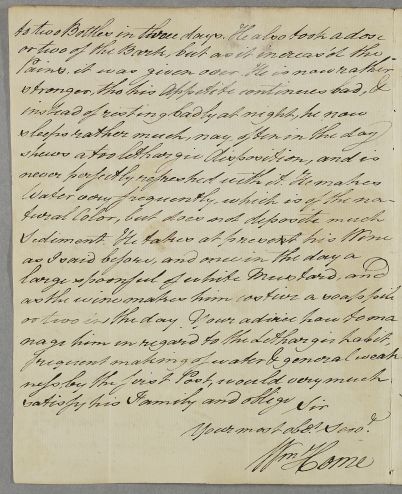 to two Bottles in three days. He also took a dose
or two of the Bark, but as it increas'd the
Pains, it was given over. He is now rather
stronger, tho his appetite continues bad, &
instead of resting badly at night, he now
sleeps rather much, nay, often in the day
shews a too lethargic disposition, and is
never perfectly refreshed with it. He makes
Water very frequently, which is of the na-
tural Color, but does not deposite much
Sediment. He takes at present his Wine
as I said before, and once in the day a
large spoonful of white Mustard, and
as the wine makes him costive a soap pill
or two in the day. Your advice how to ma
nage him in regard to the Lethargic habit,
frequent making of water & general weak
ness by the first Post, would very much
satisfy his Family and oblige
Sir
Your most obt. Servt.
Wm Home